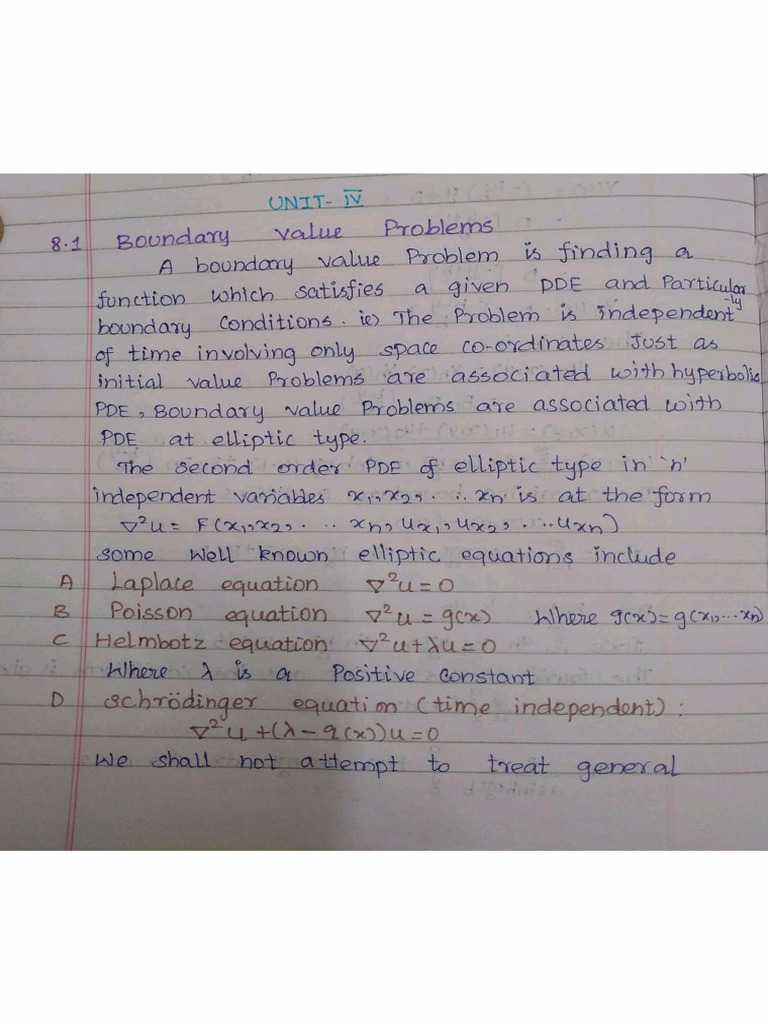 UNIT- IV
8.1 Boundary value Problems
A boundary value Problem is finding a
function which satisfies a given PDE and Particular
-ly
boundary conditions. ie) The Problem is independent
of time involving only space co-ordinates Just as
initial value Problems are associated with hyperbolic
PDE, Boundary value Problems are associated with
PDE at elliptic type.
The second order PDE of elliptic type in 'n'
independent variables x₁, x₂, . .. xn is at the form
∇²u = F(x₁, x₂, . .. xn, ux₁, ux₂, . ..uxn)
some well known elliptic equations include
A Laplace equation ∇²u = 0
B Poisson equation ∇²u = g(x) Where g(x) = g(x₁, ... xn)
C Helmbotz equation ∇²u + λu = 0
Where λ is a Positive constant
D Schrödinger equation (time independent) :
∇²u + (λ - q(x))u = 0
We shall not attempt to treat general